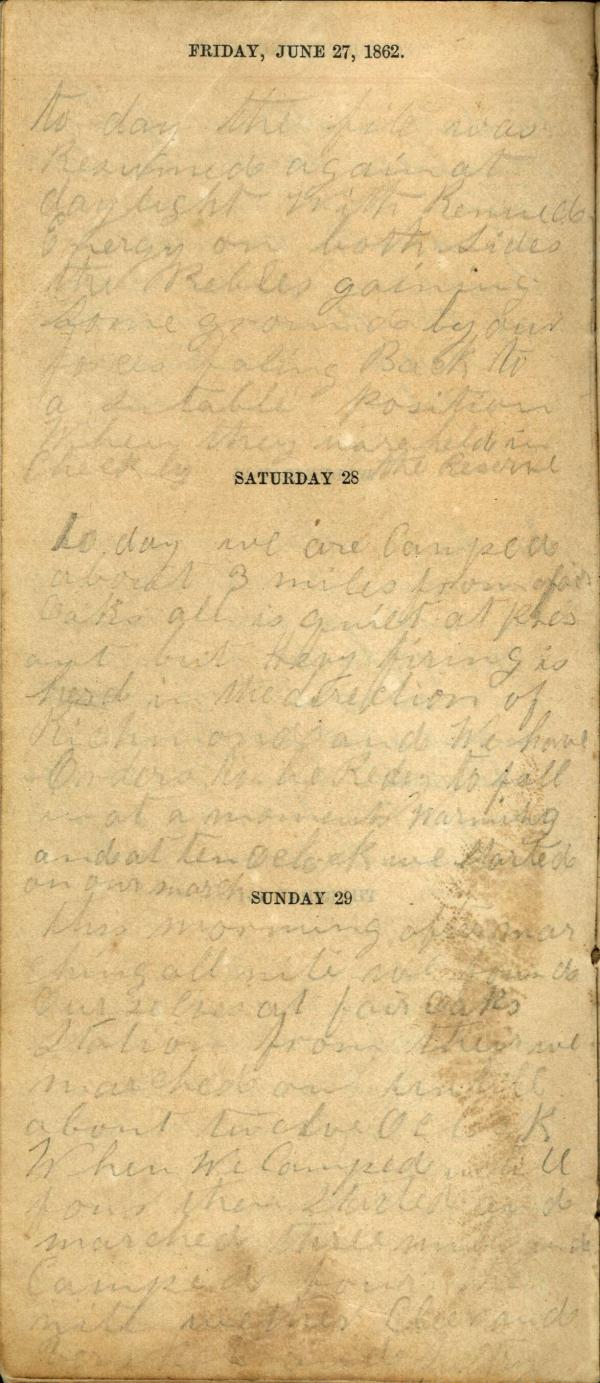 FRIDAY, JUNE 27, 1862.
to day the fite was
Resumed again at
daylight With Renued
Energy on both Sides
the Rebles gaining
Some ground by our
forces faling Back to
a sutable position
When they ware held in
Check by the Reserve
SATURDAY 28
to day we are Camped
about 3 miles from fair
Oaks all is quiet at pres
ant but Hevy firing is
herd in the direction of
Richmond and We have
Orders to be Redy to fall
in at a moments Warning
and at ten Oclock we started
on our march
SUNDAY 29
this morning after mar
ching all nite we found
Our selves at fair Oaks
Station from their we
marched on untill
about twelve Oclock
When We Camped untill
four then Started and
marched three miles and
Camped four the
nite wether Clear and